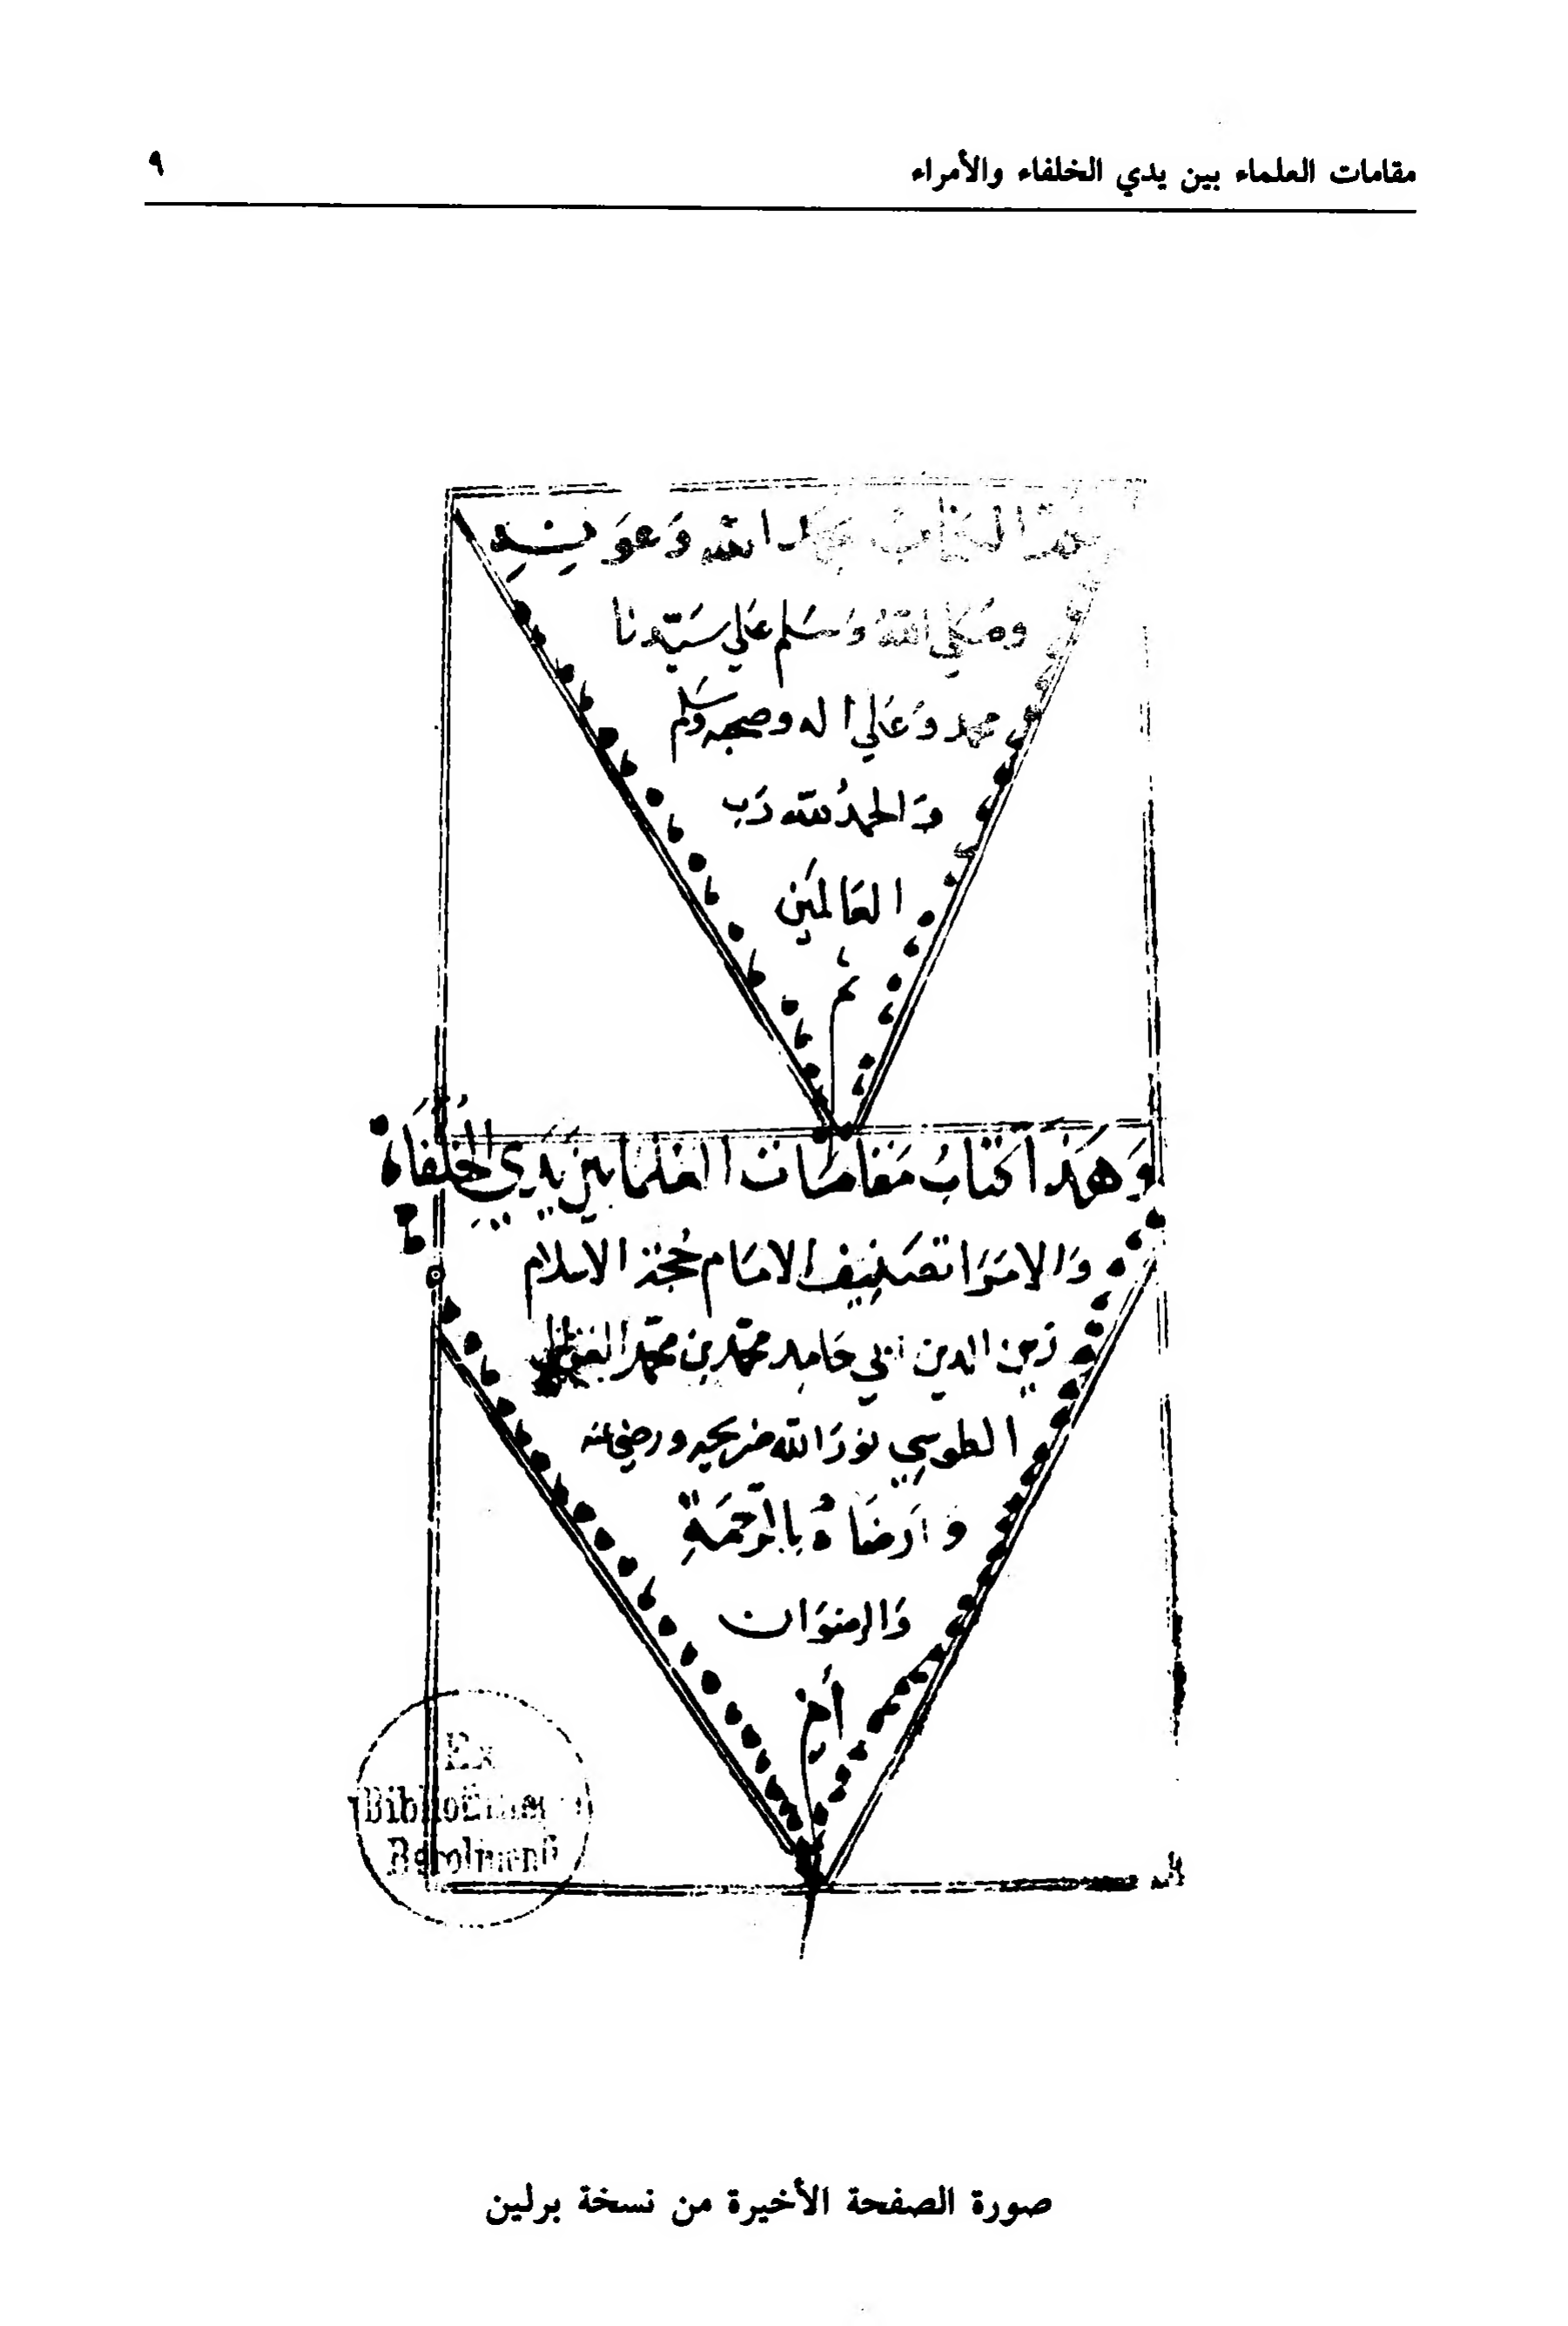 مقامات العلماء بين يدي الخلفاء والأمراء
٩
الكتاب بحمد الله وَعَوَنِهِ
وصَلى اللهُ وَسَلم عَلي سَيّدنا
محمد وَعَلي اله وصحبه وَسَلم
وَالحمدُ لله رَب
العَالمَين
تم
وَهَذا كتَابُ مَقامَات العُلما بين يَدَي الخُلفَاء
وَالامَرَا تصَنيف الامَام حُجة الاسلام
زين الدين ابي حَامِد محمّد بن محمّد الغزالي
الطوسي نورَ الله ضريحه ورضي عنه
وارَضَاهُ بالرَحمَةِ
وَالرضوَان
Ex
صورة الصفحة الأخيرة من نسخة برلين